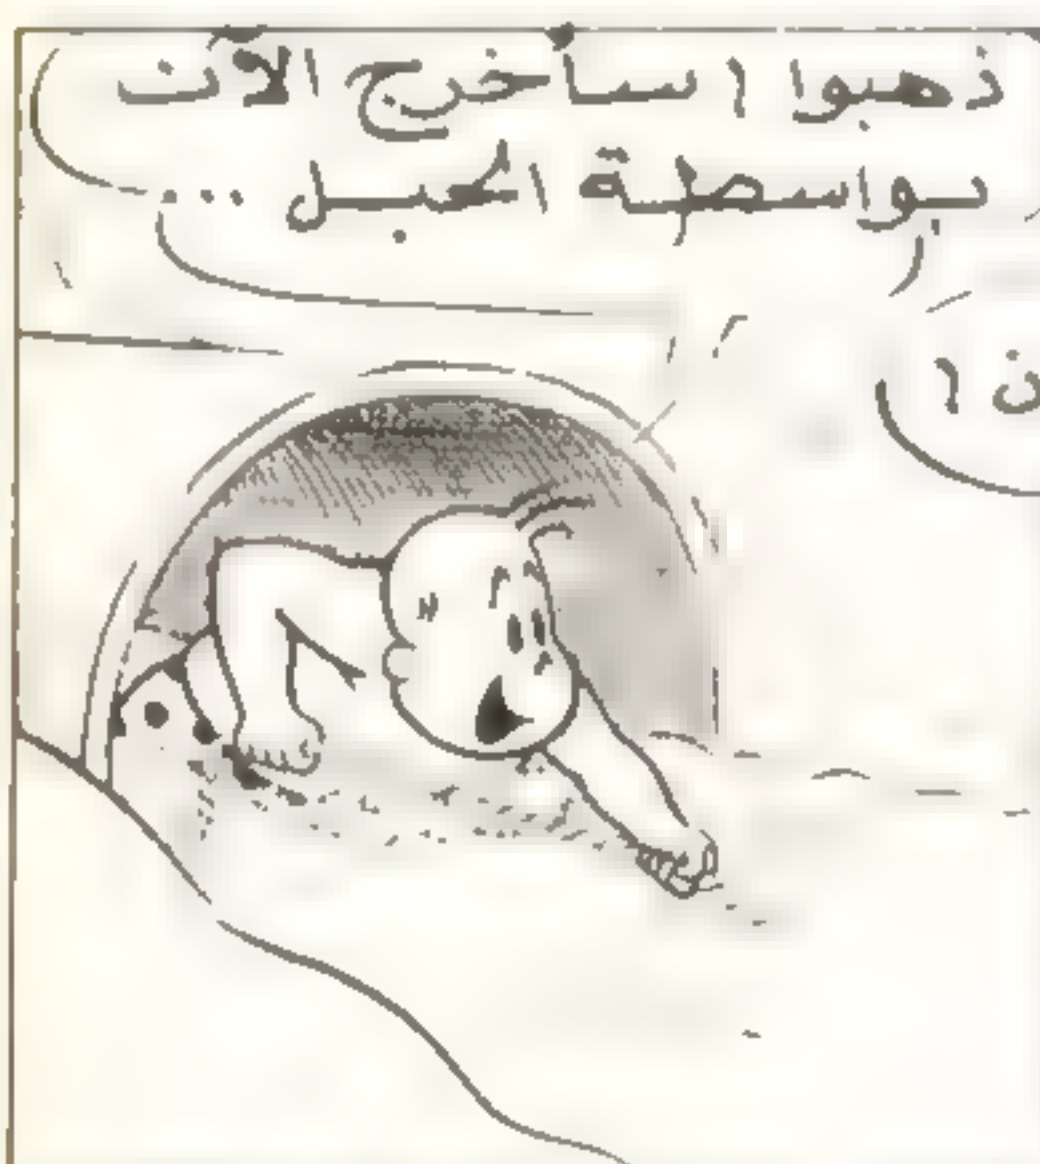 ذهبوا ! سأخرج الآن
بواسطة الحبل ...
ن !